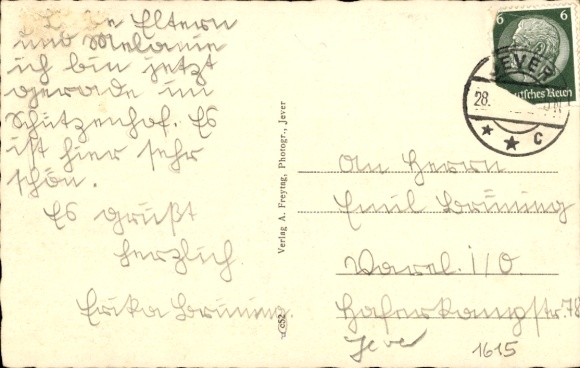 Eltern
und Melanie
ich bin jetzt
gerade im
Schützenhof. Es
ist hier sehr
schön.
Es grüßt
herzlich
Erika Brüning.
Verlag A. Freytag, Photogr., Jever
c52
6 6
Deutsches Reich
JEVER
28.
c
An Herrn
Emil Brüning
Varel. i/O.
Haferkampstr. 78
Jever
1615